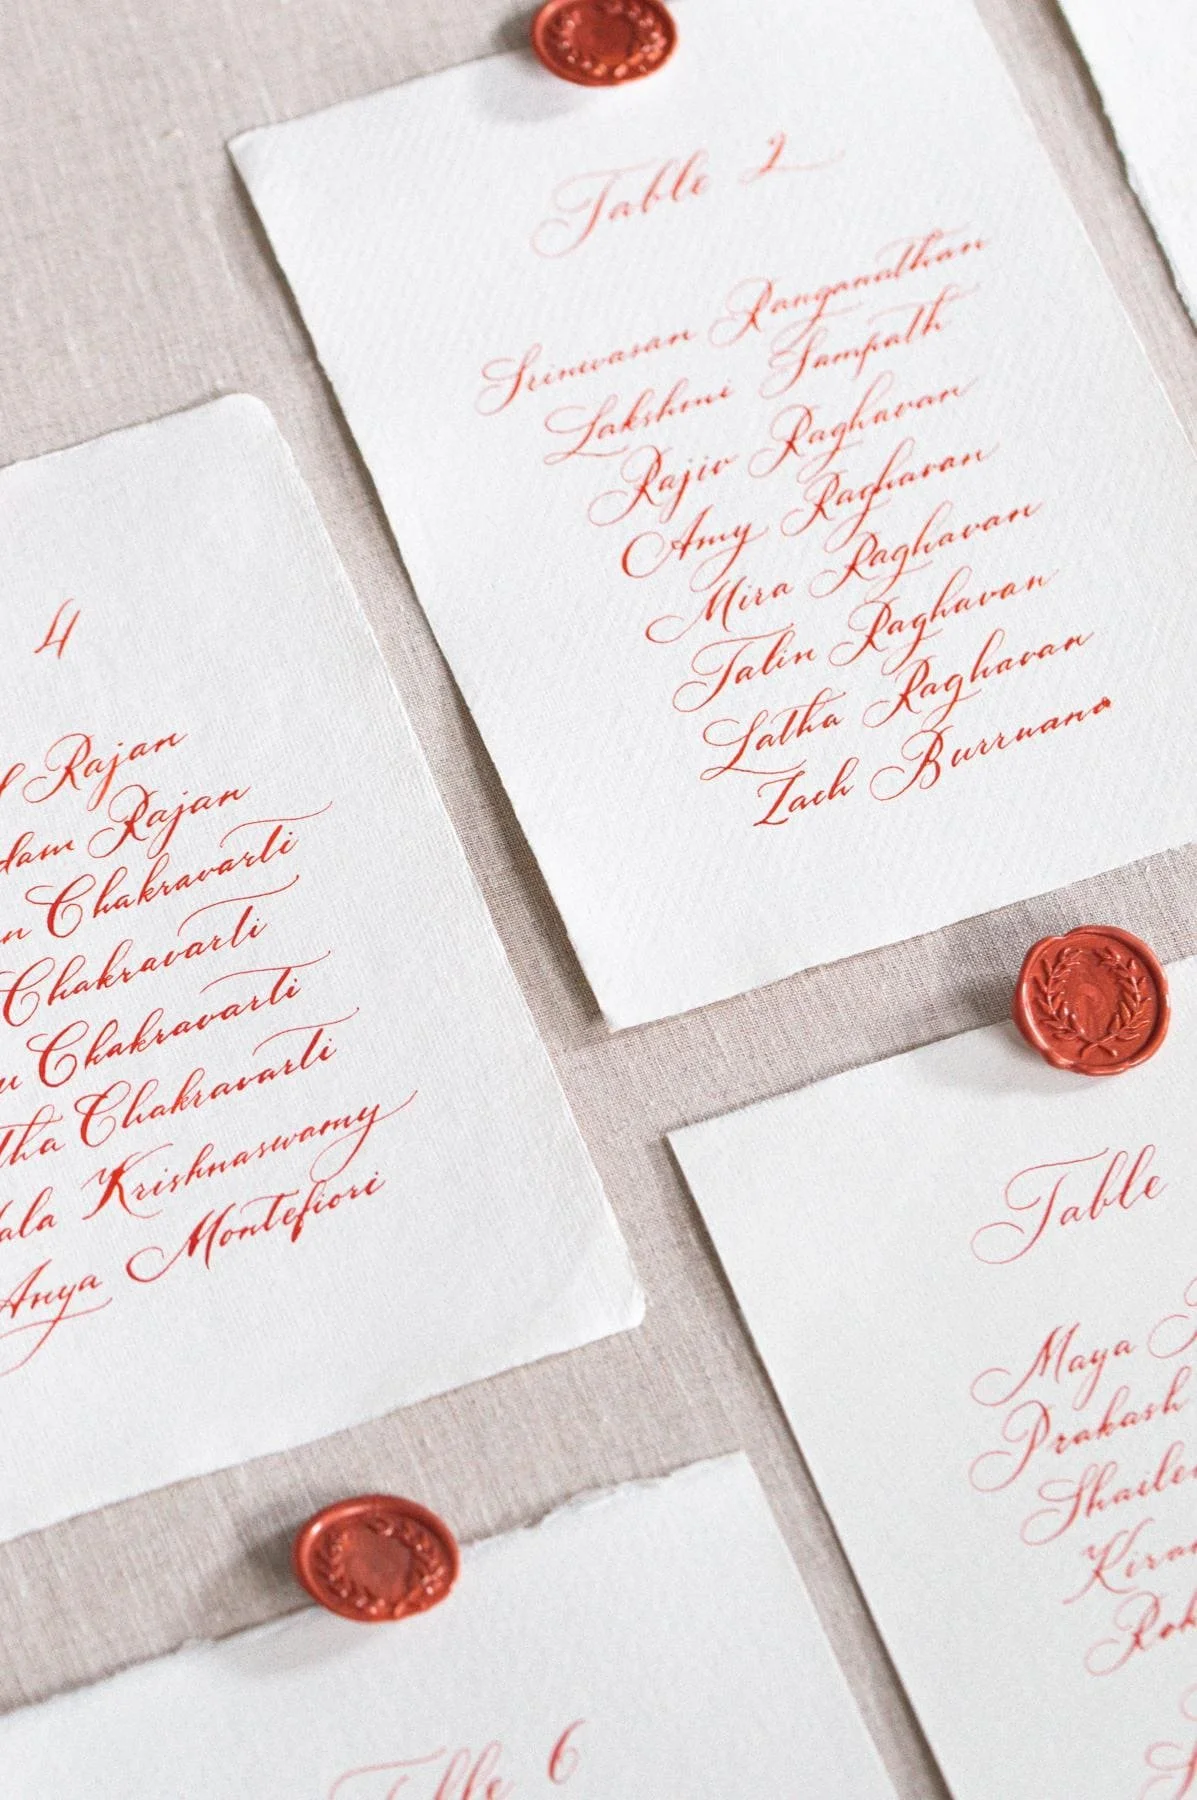 Table 2
Srinivasan Ranganathan
Lakshmi Sampath
Rajiv Raghavan
Amy Raghavan
Mira Raghavan
Talin Raghavan
Latha Raghavan
Zach Burruano
4
Rajan
Rajan
Chakravarti
Chakravarti
Chakravarti
Chakravarti
Krishnaswamy
Anya Montefiori
Table
Maya
Prakash
Table 6